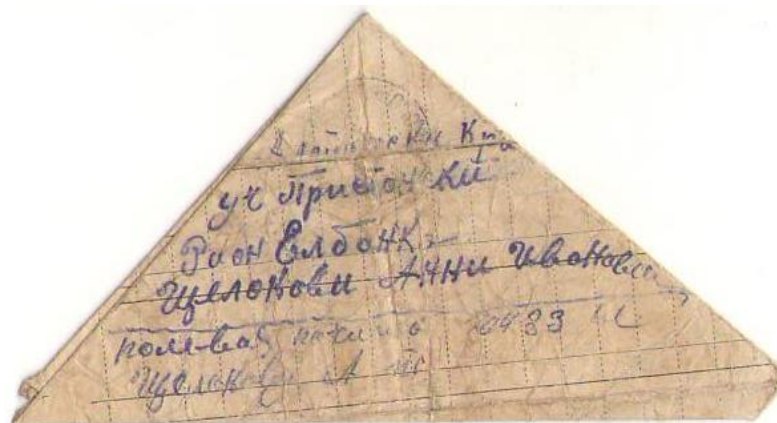 Алтайски Край
уч Пристонски
Раон Елбанка
Щелокови Анни Ивоновни
полевая почта 0433
Щелокову А